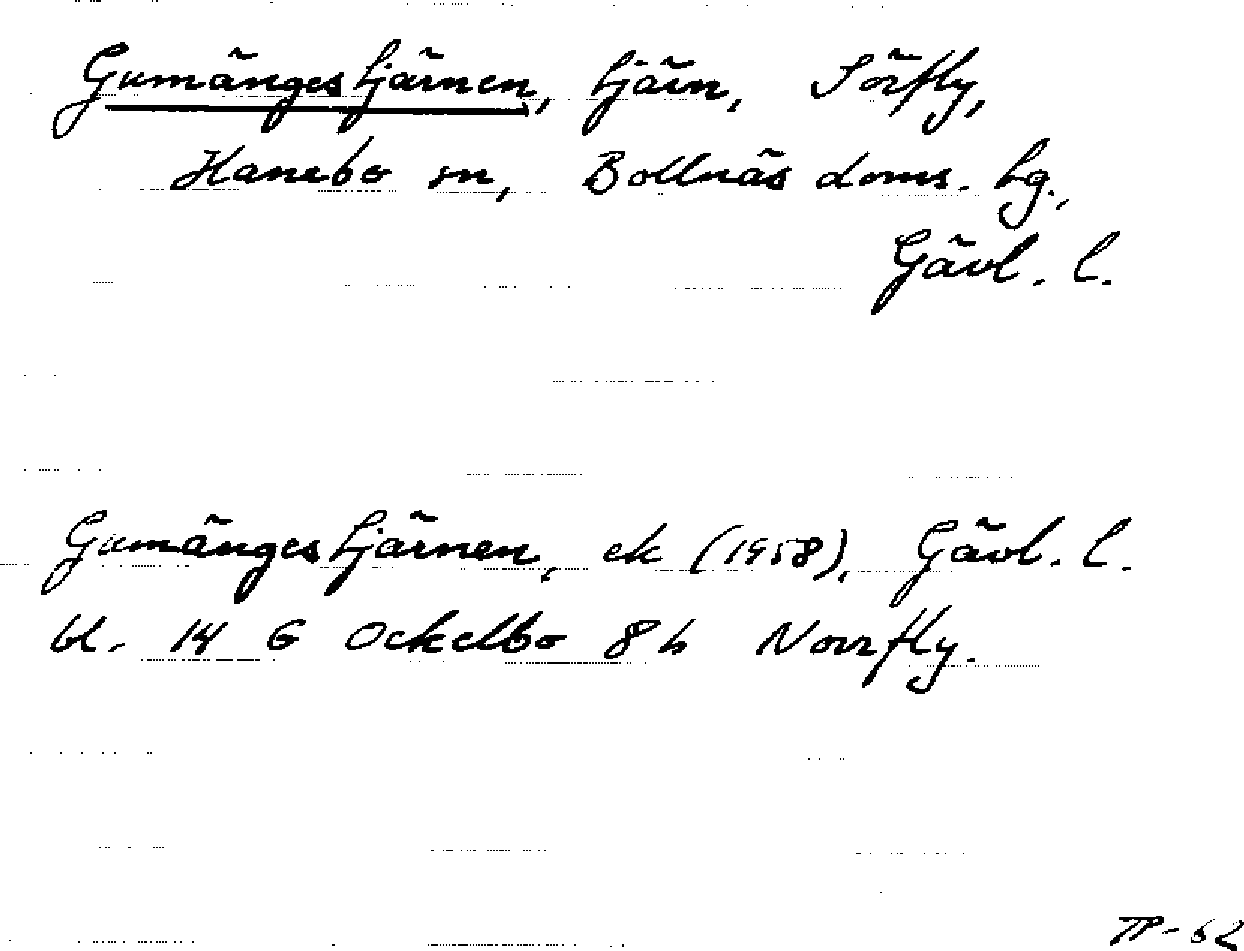 Gumängestjärnen, tjärn, Sörfly,
Hanebo sn, Bollnäs doms. tg.,
Gävl. l.
Gumängestjärnen, ek (1958), Gävl. l.
bl. 14 G Ockelbo 8 h Norrfly.
TP-62